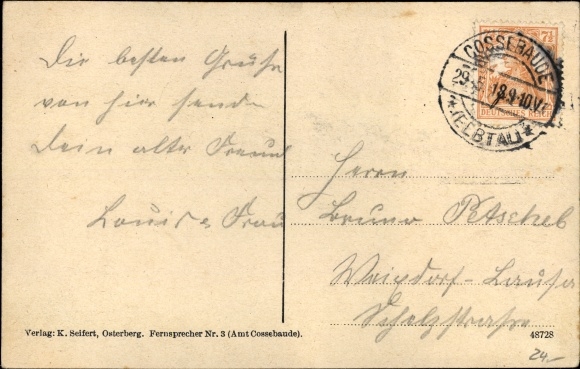 Die besten Grüße
von hier sendet
Dein alter Freund
Louis u. Frau
COSSEBAUDE
29. 5. 18. 9-10 V.
* (ELBTAL) *
7½
DEUTSCHES REICH
Herrn
Bruno
Weixdorf-Lausa
Verlag: K. Seifert, Osterberg. Fernsprecher Nr. 3 (Amt Cossebaude).
48728
24.-